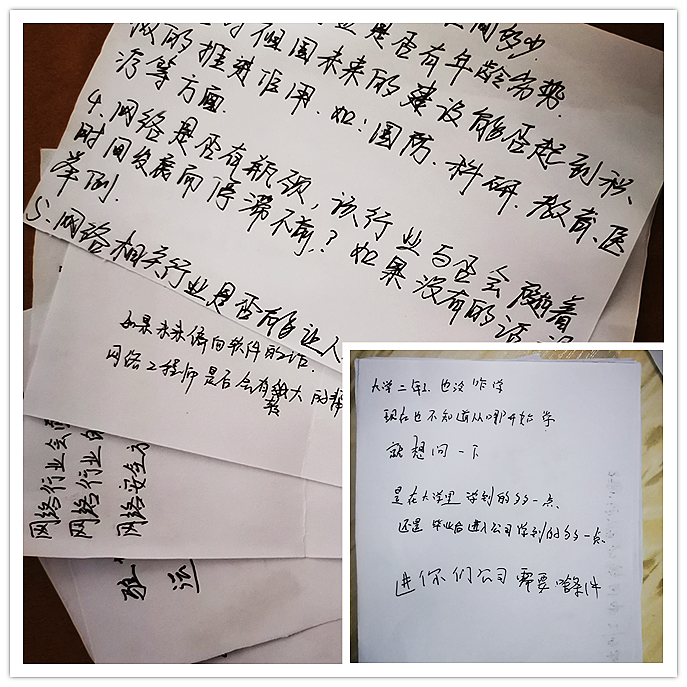 业是否有年龄劣势.
对祖国未来的建设能否起到积
极的推进作用.如:国防.科研.教育.医
疗等方面.
4.网络是否有瓶颈,该行业与否会随着
时间发展而停滞不前?如果没有的话
举例.
5.网络相关行业是否能够让人
如果未来偏向软件的话.
网络工程师是否会有较大的
网络行业会
网络行业的
网络安全方
大学二年了也没咋学
现在也不知道从哪开始学
就想问一下
是在大学里学到的多一点
还是毕业后进入公司学到的多一点.
进你们公司需要啥条件